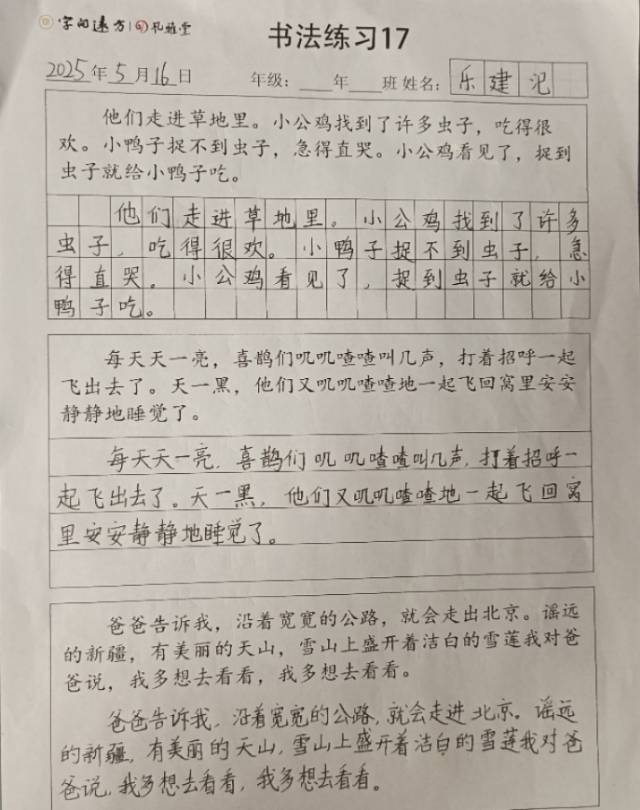 字的远方 孔雀堂
书法练习17
2025年5月16日 年级：____年____班 姓名：乐建记
他们走进草地里。小公鸡找到了许多虫子，吃得很
欢。小鸭子捉不到虫子，急得直哭。小公鸡看见了，捉到
虫子就给小鸭子吃。
他们走进草地里。小公鸡找到了许多
虫子，吃得很欢。小鸭子捉不到虫子，急
得直哭。小公鸡看见了，捉到虫子就给小
鸭子吃。
每天天一亮，喜鹊们叽叽喳喳叫几声，打着招呼一起
飞出去了。天一黑，他们又叽叽喳喳地一起飞回窝里安安
静静地睡觉了。
每天天一亮，喜鹊们叽叽喳喳叫几声，打着招呼一
起飞出去了。天一黑，他们又叽叽喳喳地一起飞回窝
里安安静静地睡觉了。
爸爸告诉我，沿着宽宽的公路，就会走出北京。遥远
的新疆，有美丽的天山，雪山上盛开着洁白的雪莲我对爸
爸说，我多想去看看，我多想去看看。
爸爸告诉我，沿着宽宽的公路，就会走进北京。遥远
的新疆，有美丽的天山，雪山上盛开着洁白的雪莲我对爸
爸说，我多想去看看，我多想去看看。